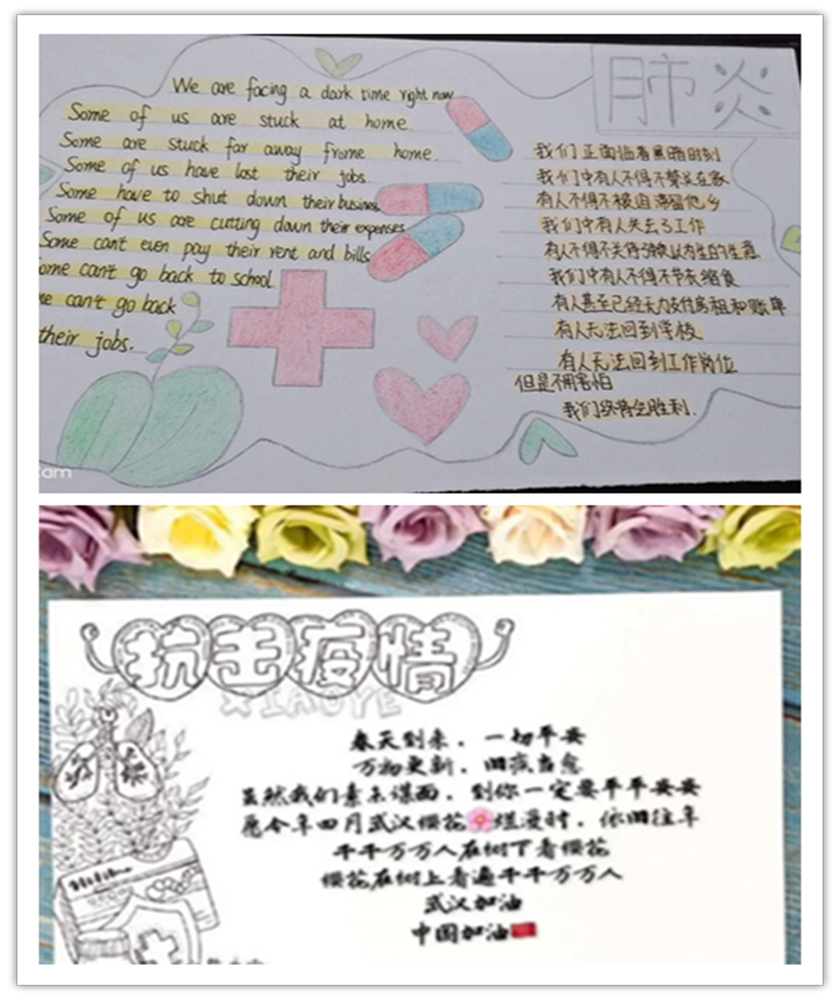 We are facing a dark time right now
Some of us are stuck at home.
Some are stuck far away frome home.
Some of us have lost their jobs
Some have to shut down their busines
Some of us are cutting down their expenses
Some can't even pay their rent and bills
ome can't go back to school
e can't go back
their jobs.
肺炎
我们正面临着黑暗时刻
我们中有人不得不禁足在家
有人不得不被迫滞留他乡
我们中有人失去了工作
有人不得不关停赖以为生的生意
我们中有人不得不节衣缩食
有人甚至已经无力支付房租和账单
有人无法回到学校
有人无法回到工作岗位
但是不用害怕
我们终将会胜利.
cam
抗击疫情
XIAOYE
春天到来，一切平安
万物更新，旧疾当愈
虽然我们素未谋面，到你一定要平平安安
愿今年四月武汉樱花🌸烂漫时，依旧往年
千千万万人在树下看樱花
樱花在树上看遍千千万万人
武汉加油
中国加油🇨🇳